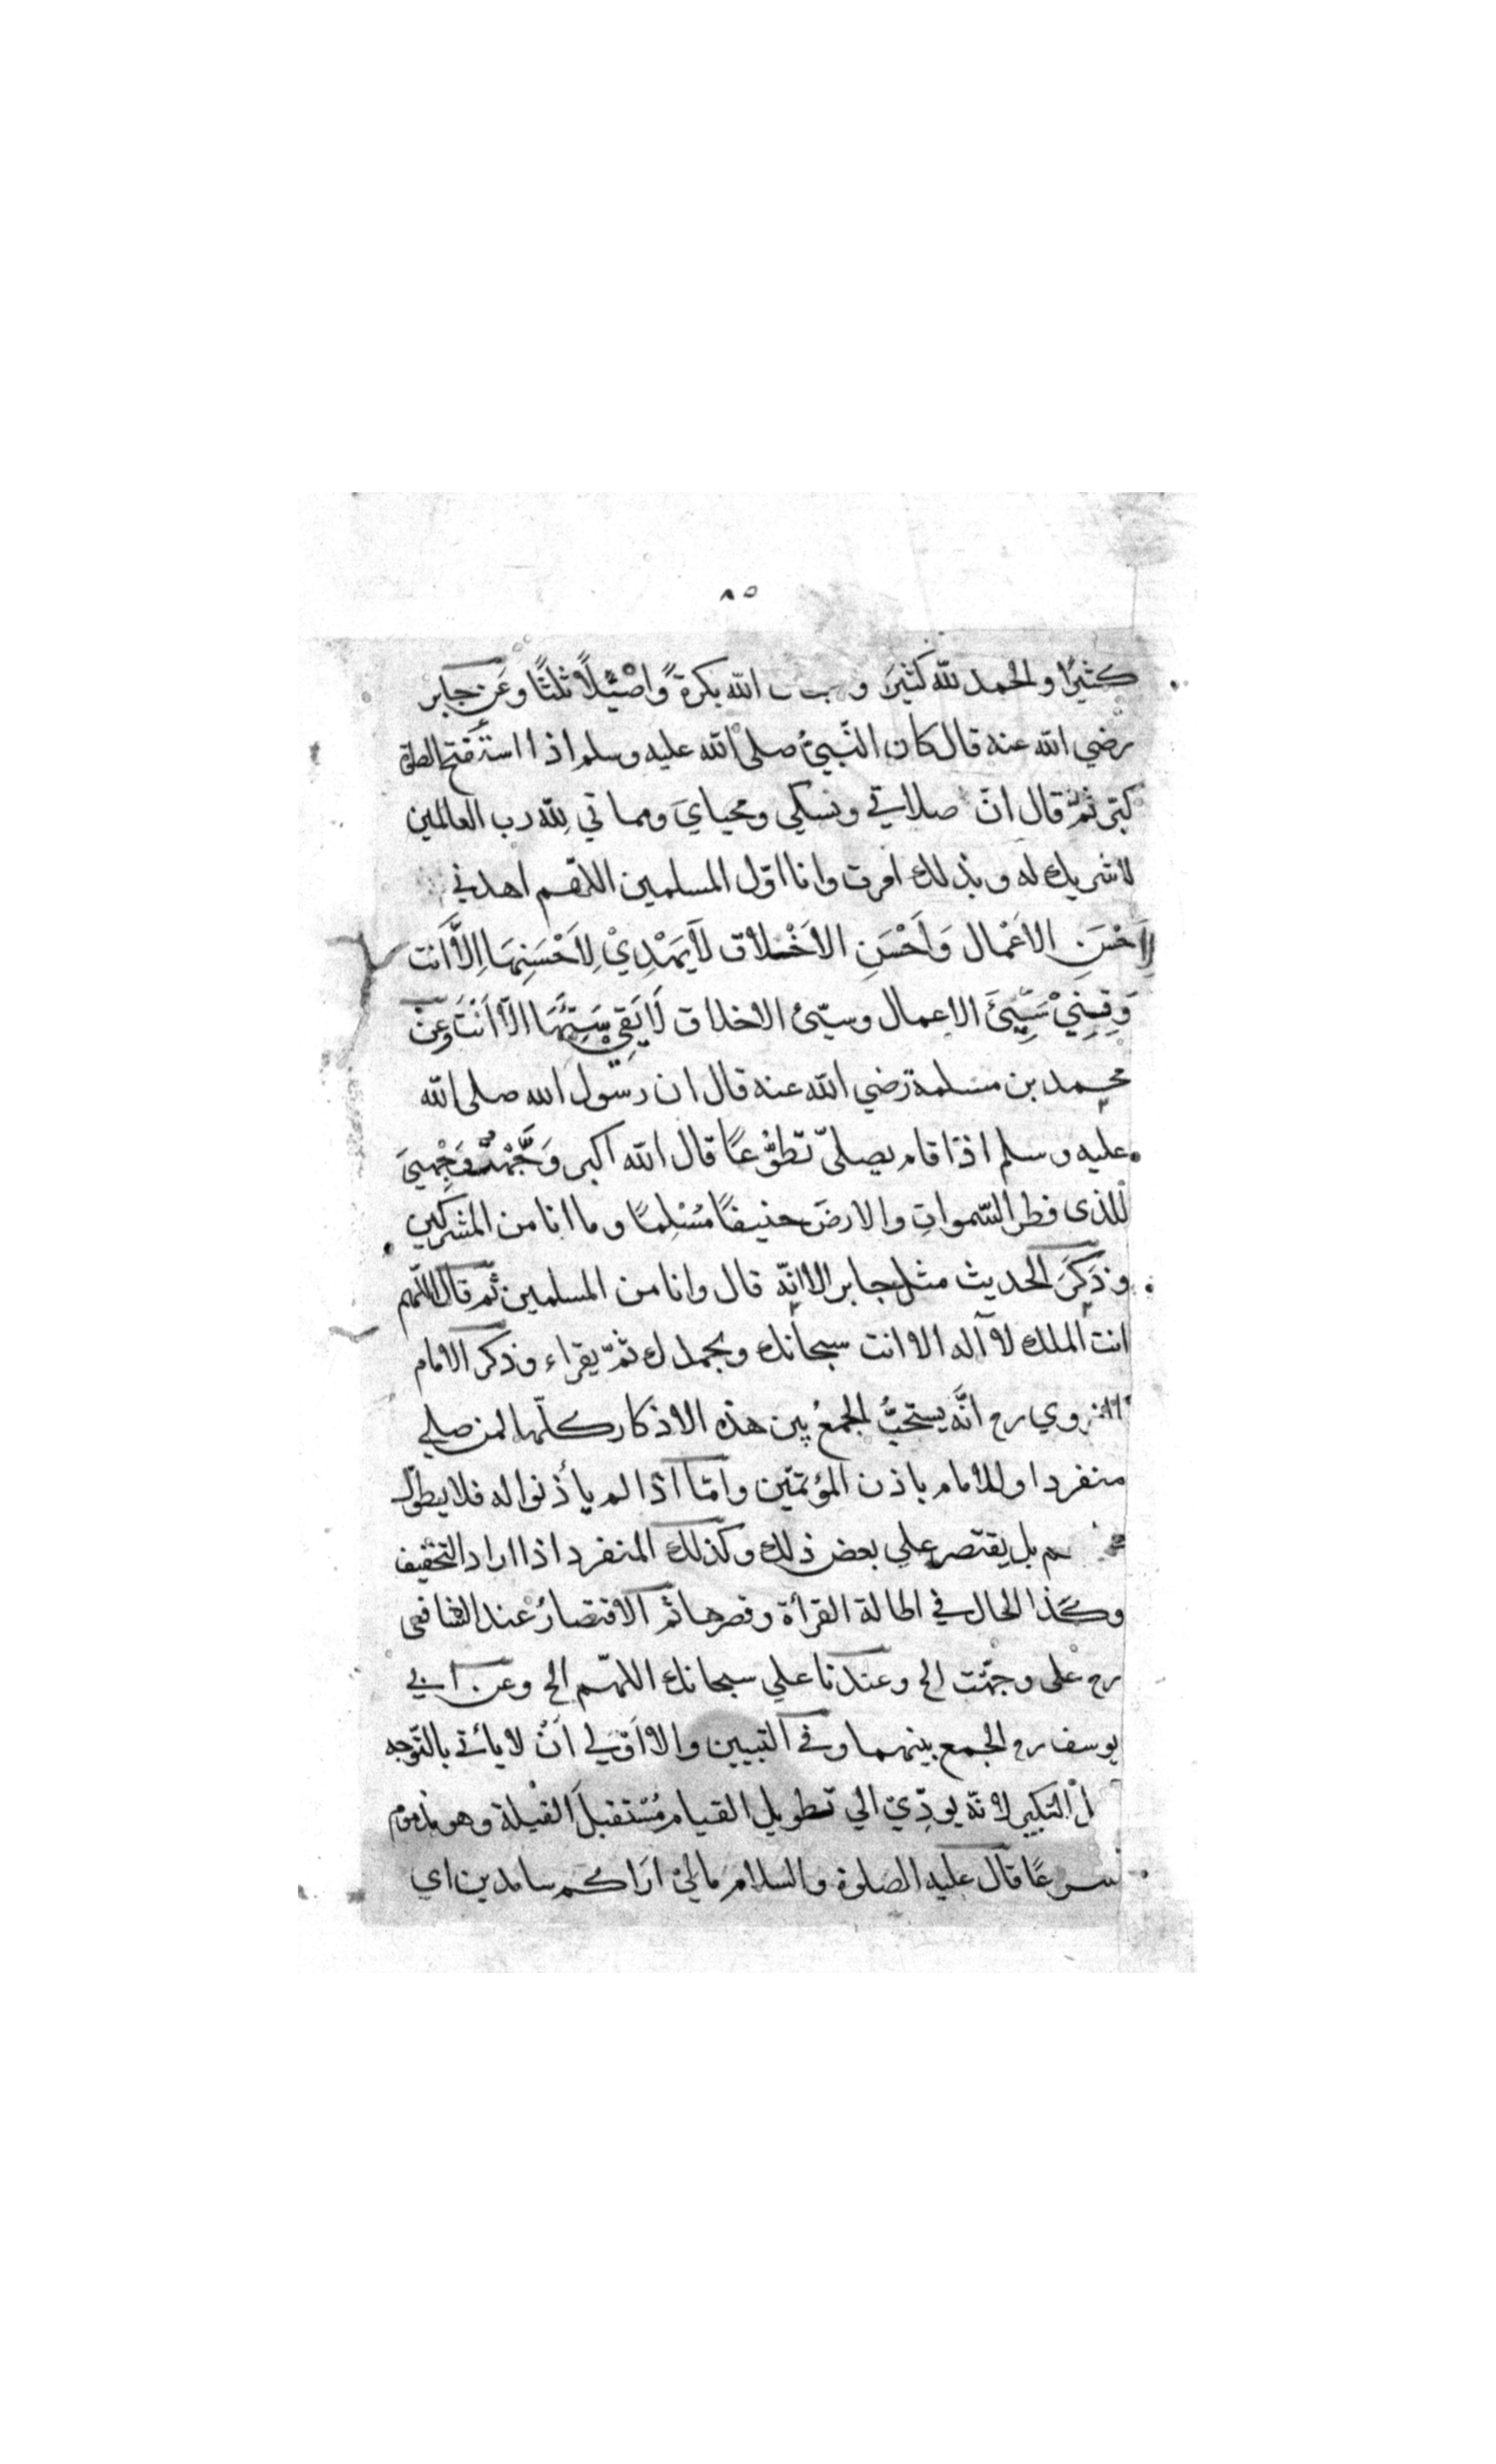 ٨٥
كثيرًا والحمد لله كثيرَ و الله بكرةً واصْيْلاً ثلثًا وعَن جابر
رضي الله عنه قال كان النّبيُّ صلى الله عليه وسلم اذا استَفتح الصلوة
كبّر ثمَّ قال انّ صلاتي ونسكي ومحيايَ ومماتي لِلّه رب العالمين
لا شريك له وبذلك امرت وانا اوّل المسلمين اللهّم اهدني
لِاَحْسَنِ الاَعْمال وَاَحْسَنِ الاَخْلاق لاَيَهْدِيْ لِاَحْسَنِهَا اِلاَّ اَنت
وَقِنِيْ سَيِّئَ الاعمال وسيّئ الاخلاق لَايَقِيْ سَيِّئَهَا الاَّ اَنْتَ وَعَنْ
محمد بن مسلمة رضي الله عنه قال ان رسول الله صلى الله
عليه وسلم اذا قام يصلىّ تطوُّعًا قال الله اكبر وَجَّهْتُ وَجْهِيَ
للذى فطر السّمواتِ والارضَ حنيفًا مُسْلِمًا وما انا من المشركين
وذَكَرَ الحديث مثل جابر الا انّه قال وانا من المسلمين ثمّ قال اللّهم
انت الملك لا آله الا انت سبحانك وبحمدك ثمّ يقراء وذكر الامام
النووي رح انَّه يستحبُّ الجمعُ بين هذه الاذكار كلّها لمن صلي
منفردا وللامام باذن المؤتمّين وامّا اذا لم يأذنوا له فلا يطوّل
بل يقتصر علي بعض ذلك وكذلك المنفرد اذا اراد التخفيف
وكَذا الحال في اطالة القرأة وقصرها ثم الاقتصارُ عند الشافعى
رح على وجّهت الخ وعندنا علي سبحانك اللهّم الخ وعن ابي
يوسف رح الجمع بينهما وفي التبيين والاوَّلي اَنْ لا يأتي بالتّوجه
التكبير لانّه يودِّيْ الي تطويل القيام مُسْتقبلَ القبلة وهو مذموم
شرعًا قال عليه الصلوة والسلام مالِيْ اَرَاكم سامدين اي